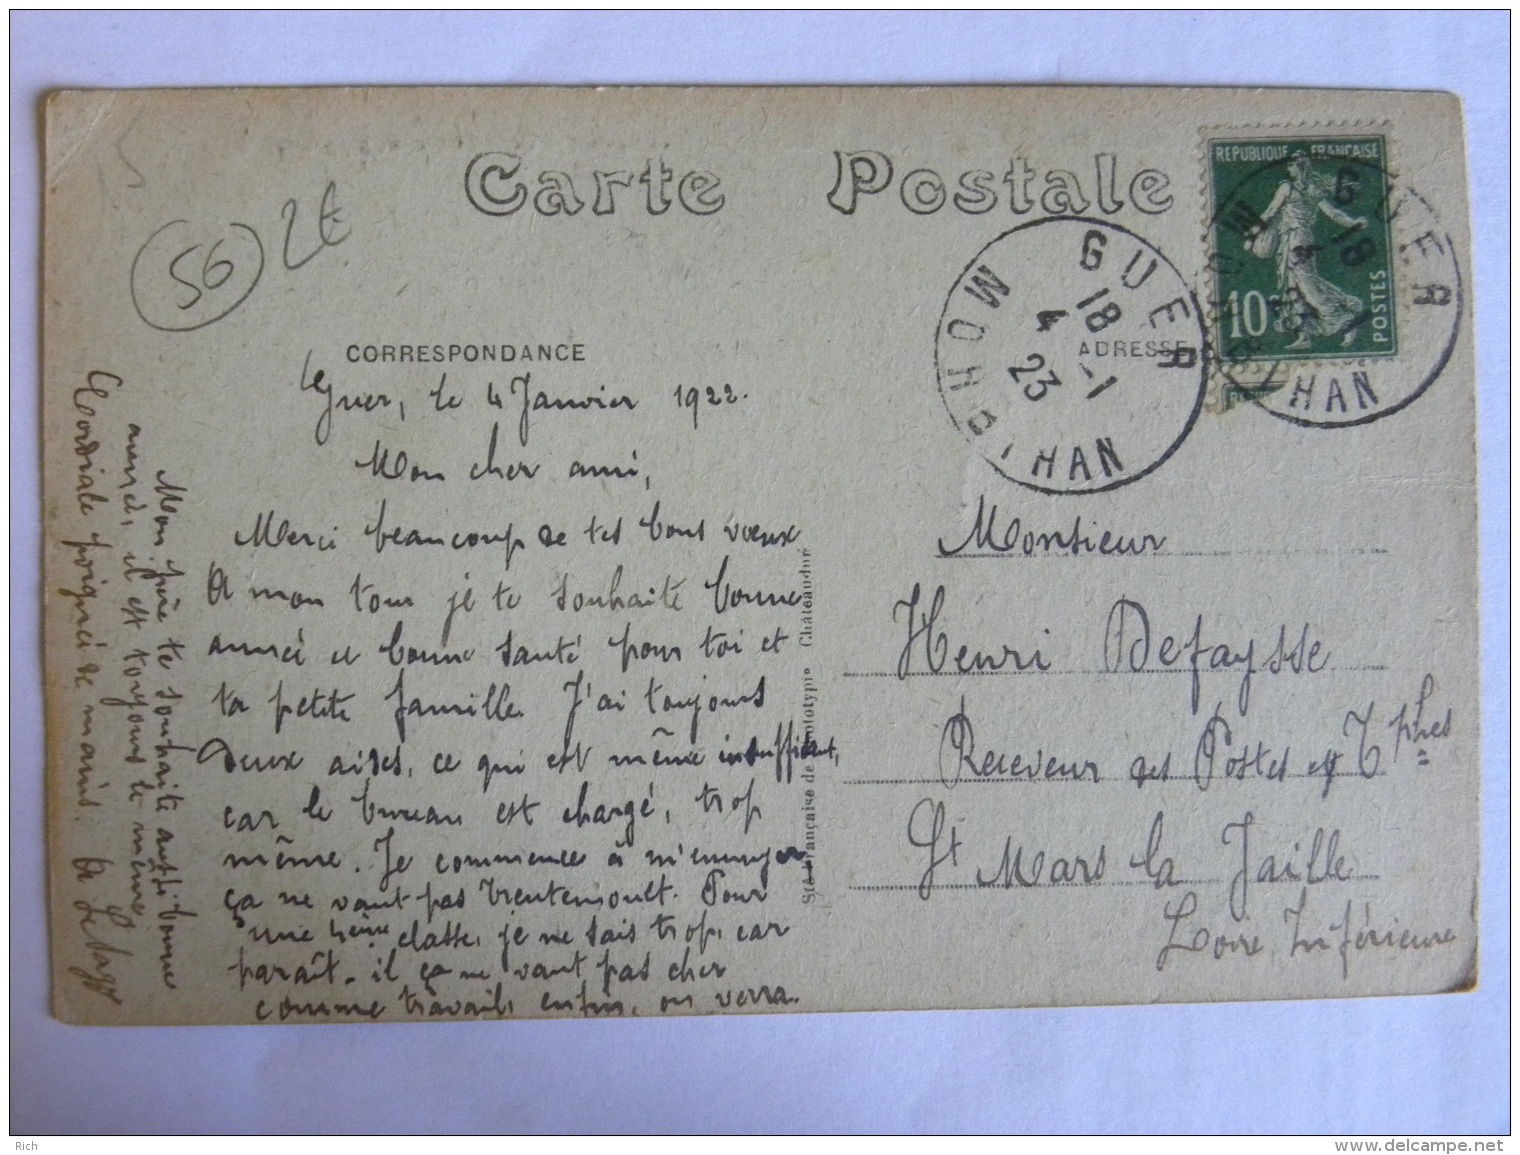 Carte Postale
56
2€
REPUBLIQUE FRANÇAISE
10c
POSTES
GUER
18
4 -1
23
MORBIHAN
GUER
18
4 -1
23
MORBIHAN
CORRESPONDANCE
ADRESSE
Guer, le 4 Janvier 1922.
Mon cher ami,
Merci beaucoup de tes bons vœux
A mon tour je te souhaite bonne
année et bonne santé pour toi et
ta petite famille. J'ai toujours
deux aides, ce qui est même insuffisant,
car le bureau est chargé, trop
même. Je commence à m'ennuyer
ça ne vaut pas Trentemoult. Pour
une classe, je ne sais trop, car
paraît-il ça ne vaut pas cher
comme travail, enfin, on verra.
Mon père te souhaite aussi bonne
année, il est toujours le même
Cordiale poignée de mains.
Sté Française de Phototypie Châteaudun
Monsieur
Henri Defaysse
Receveur des Postes et Tphes
St Mars la Jaille
Loire Inférieure
Rich
www.delcampe.net